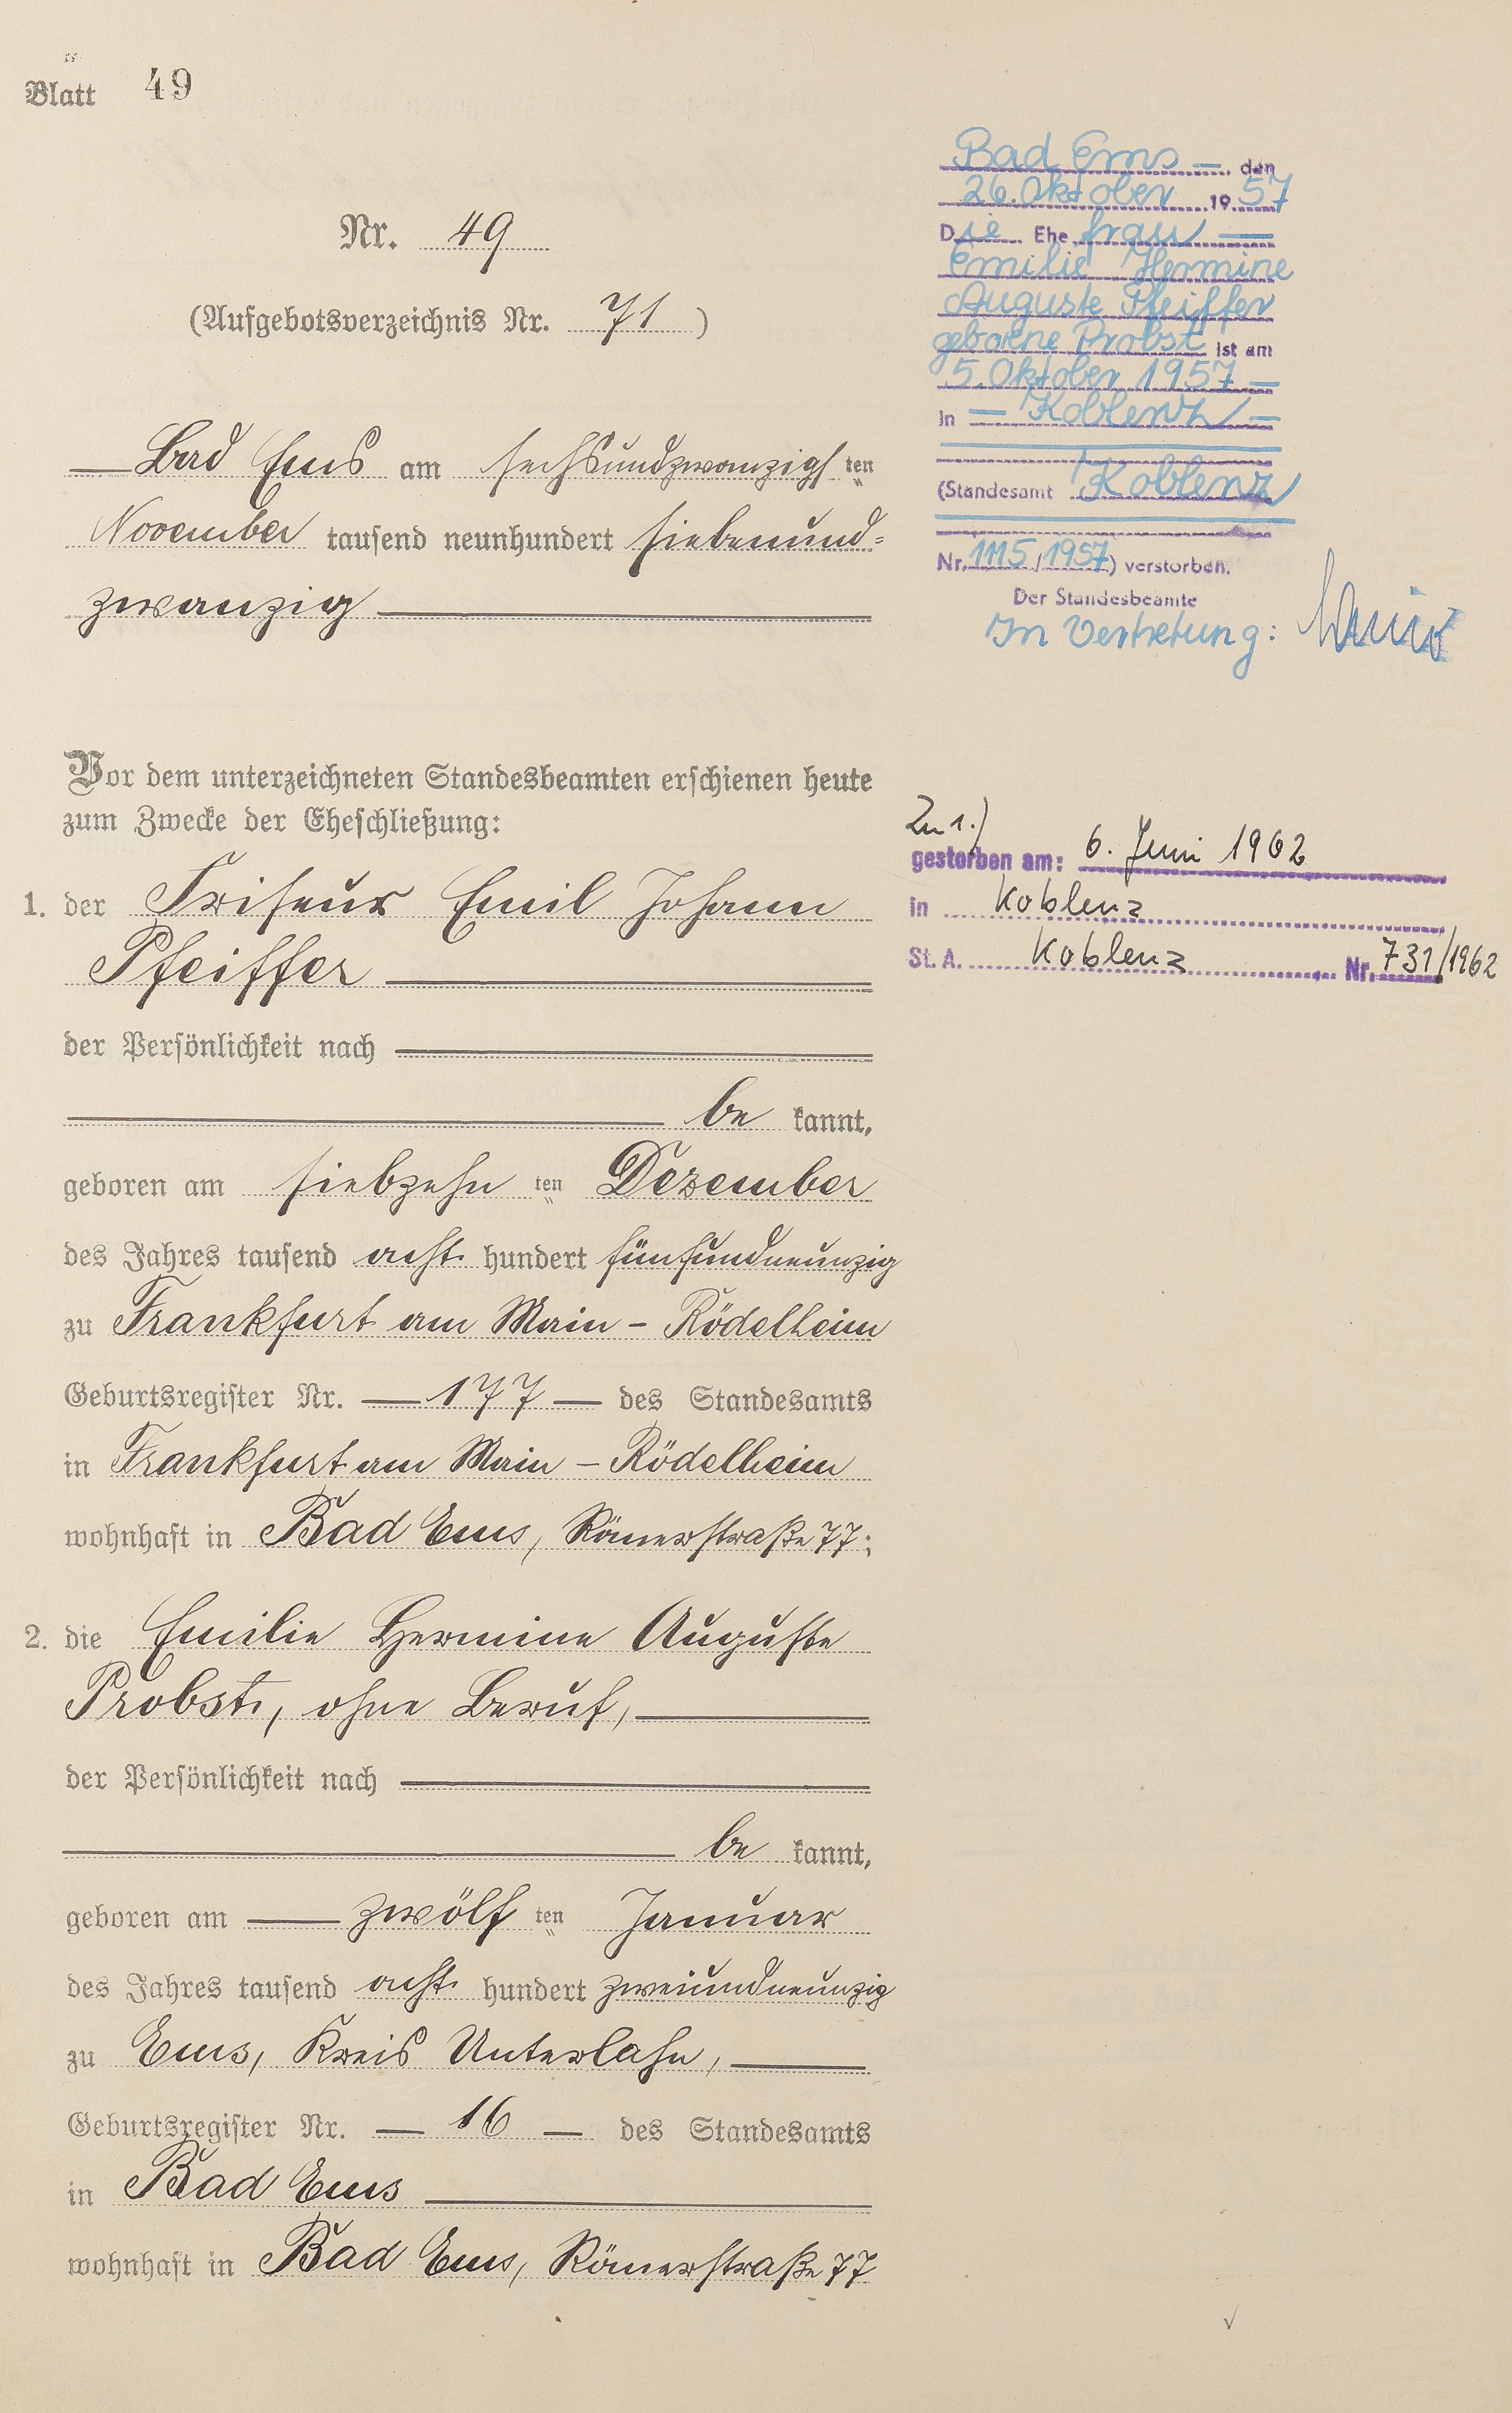 Blatt 49
Nr. 49
(Aufgebotsverzeichnis Nr. 71)
Bad Ems am sechsundzwanzigsten
November tausend neunhundert siebenund-
zwanzig
Vor dem unterzeichneten Standesbeamten erschienen heute
zum Zwecke der Eheschließung:
1. der Friseur Emil Johann
Pfeiffer
der Persönlichkeit nach
be kannt,
geboren am siebzehn ten Dezember
des Jahres tausend acht hundert fünfundneunzig
zu Frankfurt am Main - Rödelheim
Geburtsregister Nr. 177 des Standesamts
in Frankfurt am Main - Rödelheim
wohnhaft in Bad Ems, Römerstraße 77;
2. die Emilie Hermine Auguste
Probst, ohne Beruf,
der Persönlichkeit nach
be kannt,
geboren am zwölf ten Januar
des Jahres tausend acht hundert zweiundneunzig
zu Ems, Kreis Unterlahn,
Geburtsregister Nr. 16 des Standesamts
in Bad Ems
wohnhaft in Bad Ems, Römerstraße 77
Bad Ems, den
26. Oktober 1957
Die Ehefrau
Emilie Hermine
Auguste Pfeiffer
geborene Probst ist am
5. Oktober 1957
in Koblenz
(Standesamt Koblenz
Nr. 1115/1957) verstorben.
Der Standesbeamte
In Vertretung:
Zu 1.)
gestorben am: 6. Juni 1962
in Koblenz
St. A. Koblenz Nr. 731/1962